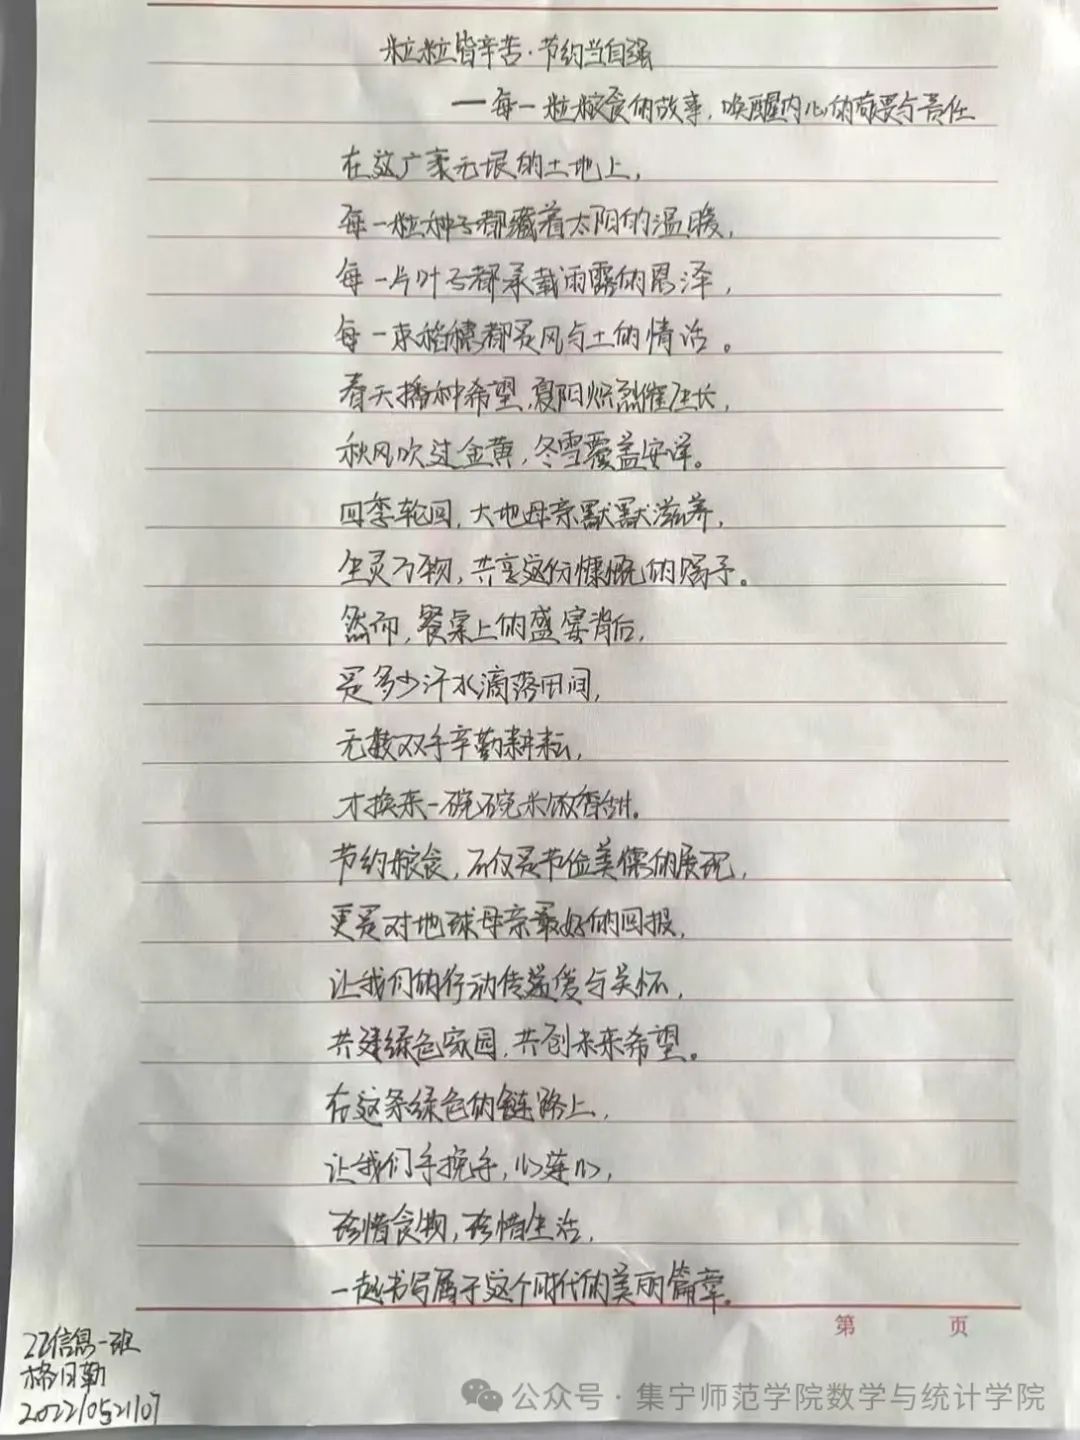 粒粒皆辛苦·节约当自强
——每一粒粮食的故事,唤醒内心的敬畏与责任
在这广袤无垠的土地上,
每一粒种子都藏着太阳的温暖,
每一片叶子都承载雨露的恩泽,
每一束稻穗都是风与土的情话。
春天播种希望,夏阳炽烈催生长,
秋风吹过金黄,冬雪覆盖安详。
四季轮回,大地母亲默默滋养,
生灵万物,共享这份慷慨的赐予。
然而,餐桌上的盛宴背后,
是多少汗水滴落田间,
无数双手辛勤耕耘,
才换来一碗碗米饭香甜。
节约粮食,不仅是节俭美德的展现,
更是对地球母亲最好的回报,
让我们的行动传递爱与关怀,
共建绿色家园,共创未来希望。
在这条绿色的链路上,
让我们手挽手,心连心,
珍惜食物,珍惜生活,
一起书写属于这个时代的美丽篇章。
第 页
22信息一班
格日勤
20221052107
公众号·集宁师范学院数学与统计学院